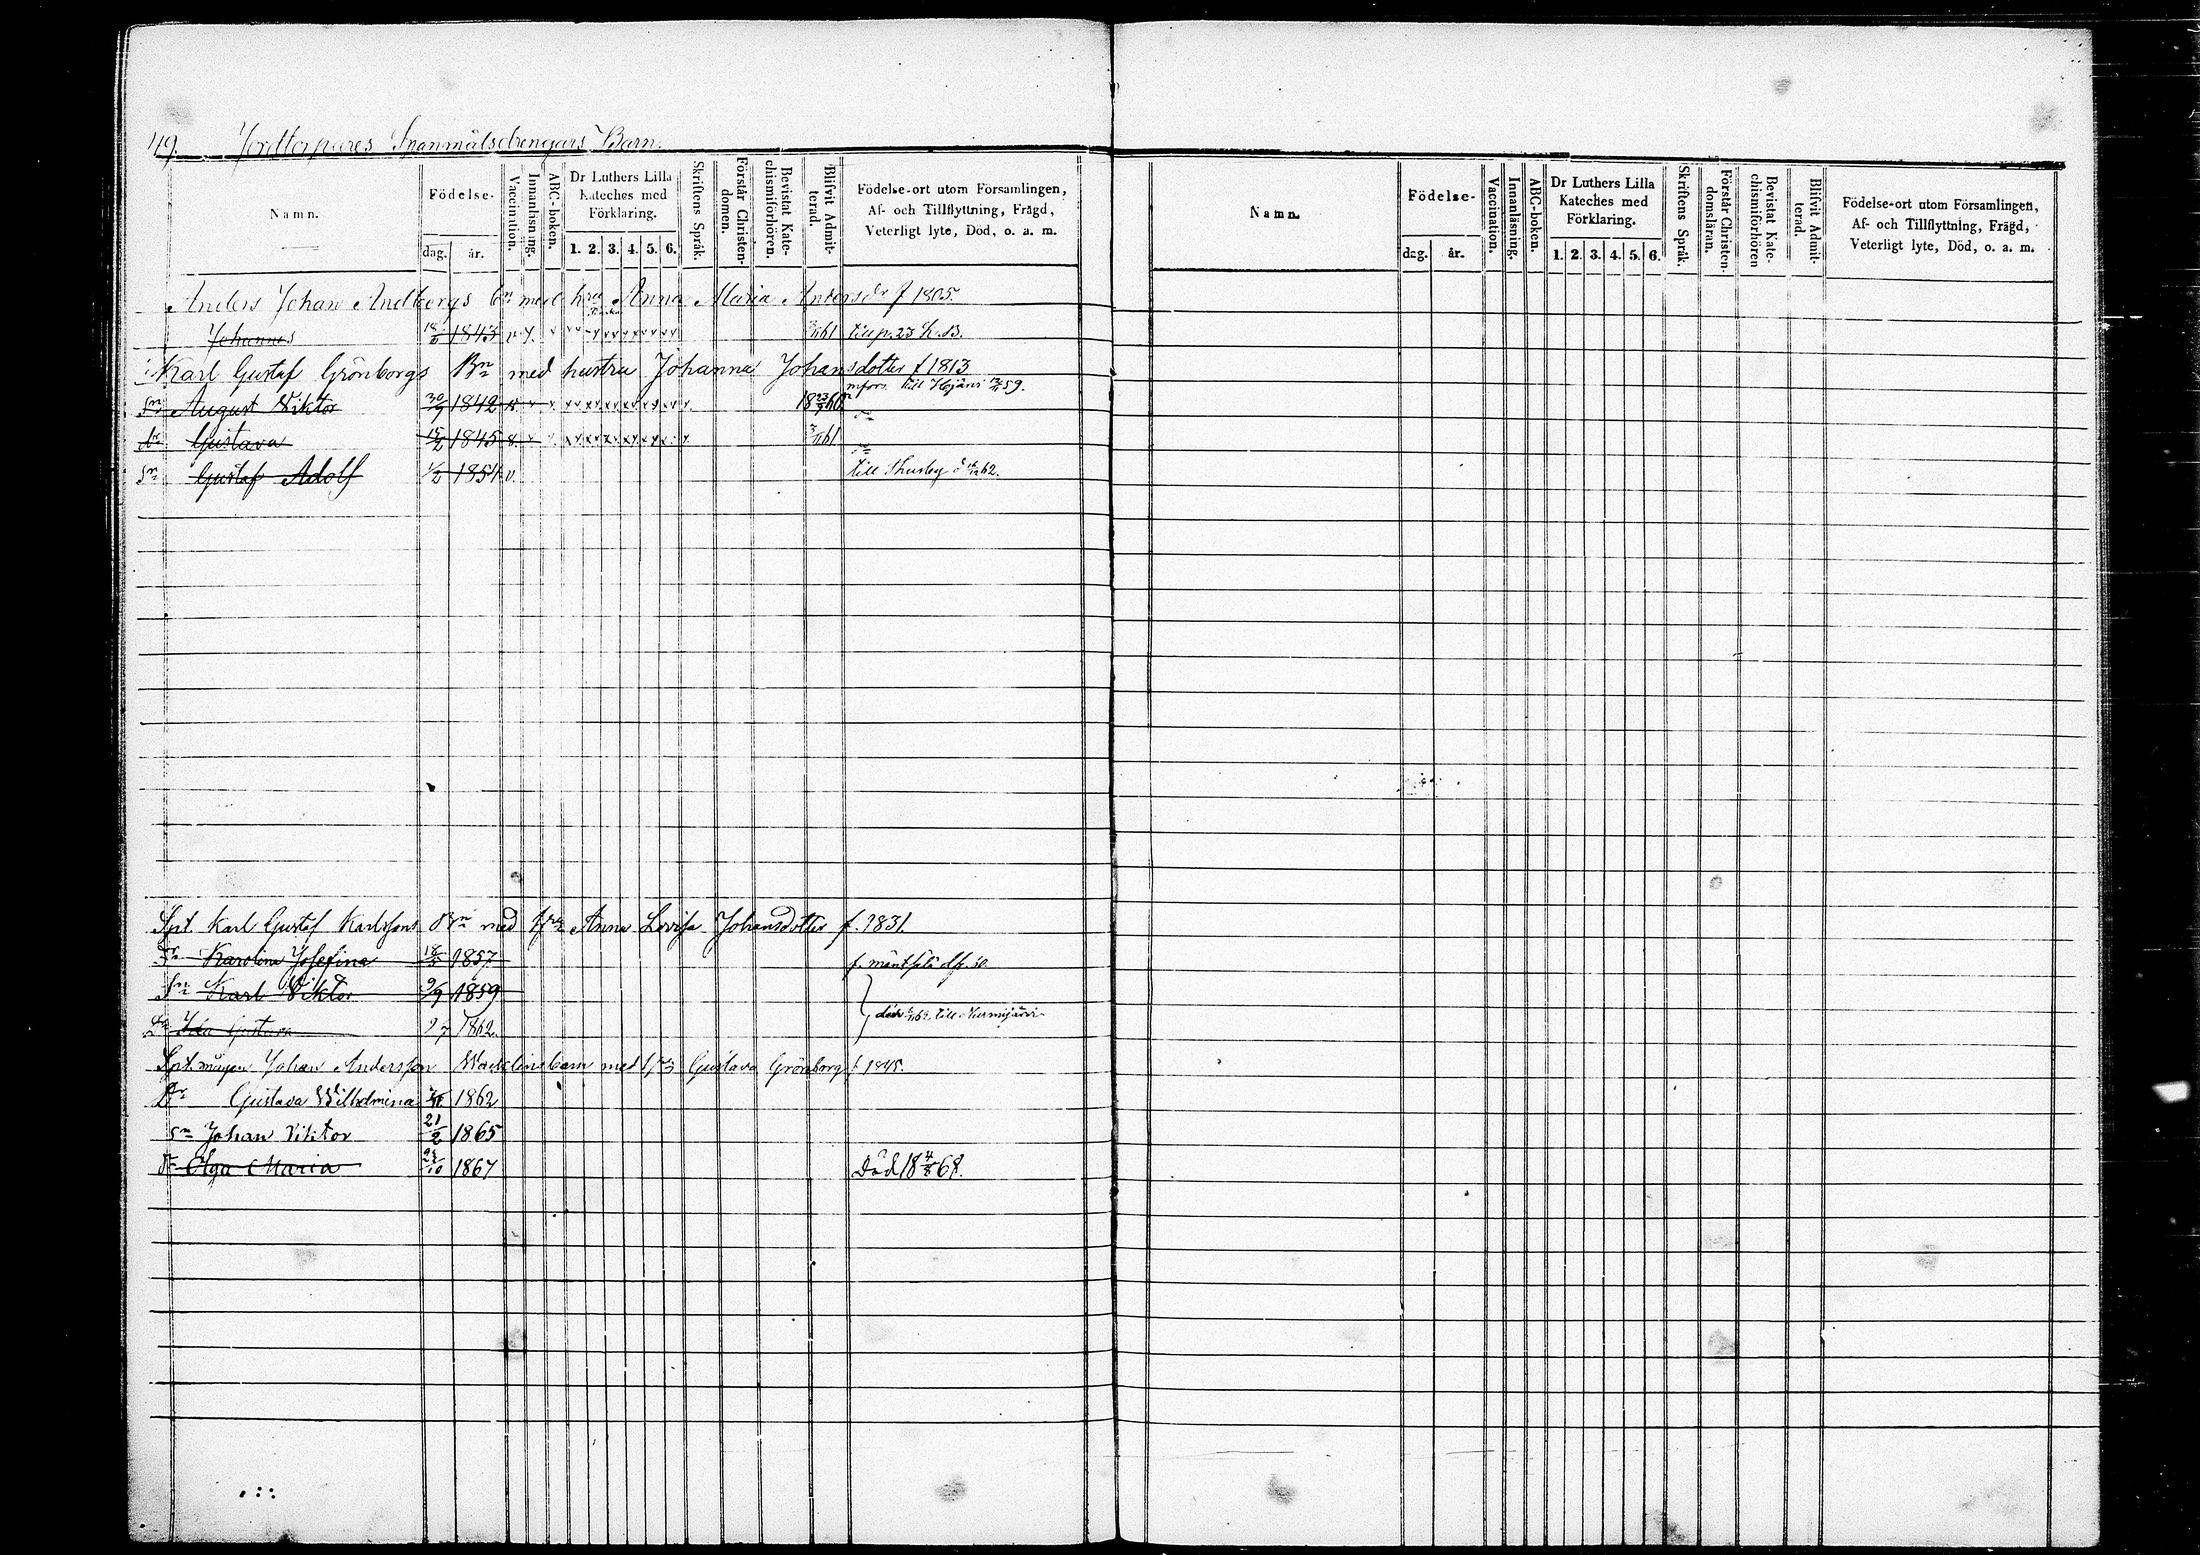 49. Jordtorpares Spanmålsdrengars Barn.
Namn. Födelse- dag. år. Vaccination. Innanläsning. ABC-boken. Dr Luthers Lilla Kateches med Förklaring. 1. 2. 3. 4. 5. 6. Skriftens Språk. Förstår Christendomen. Bevistat Katechismiförhören. Blifvit Admitterad. Födelse-ort utom Församlingen, Af- och Tillflyttning, Frägd, Veterligt lyte, Död, o. a. m.
Anders Johan Andbergs bn med hru Anna Maria Andersdr f 1805.
Johannes 1843 v. 61 till p. 23
Karl Gustaf Grönborgs Bn med hustru Johanna Johansdotter f 1813
till 59.
Sn August Viktor 30/9 1842 18 23/9 60
dr Gustava 15/2 1845 61
Sn Gustaf Adolf 1/2 1854 v. till 62.
Spt. Karl Gustaf Karlssons Bn med Anna Lovisa Johansdotter f. 1831.
Karolina Josefina 1857 f.
Sn Karl Viktor 9/9 1859
Dr Ida Gustava 1862 62 till Nurmijärvi
Johan Andersson barn med Gustava Grönborg f. 1845.
Dr Gustava Wilhelmina 1862
Sn Johan Viktor 21/2 1865
Dr Olga Maria 1867 Död 18 4/8 68.
Namn. Födelse- dag. år. Vaccination. Innanläsning. ABC-boken. Dr Luthers Lilla Kateches med Förklaring. 1. 2. 3. 4. 5. 6. Skriftens Språk. Förstår Christendomsläran. Bevistat Katechismiförhören Blifvit Admitterad. Födelse-ort utom Församlingen, Af- och Tillflyttning, Frägd, Veterligt lyte, Död, o. a. m.